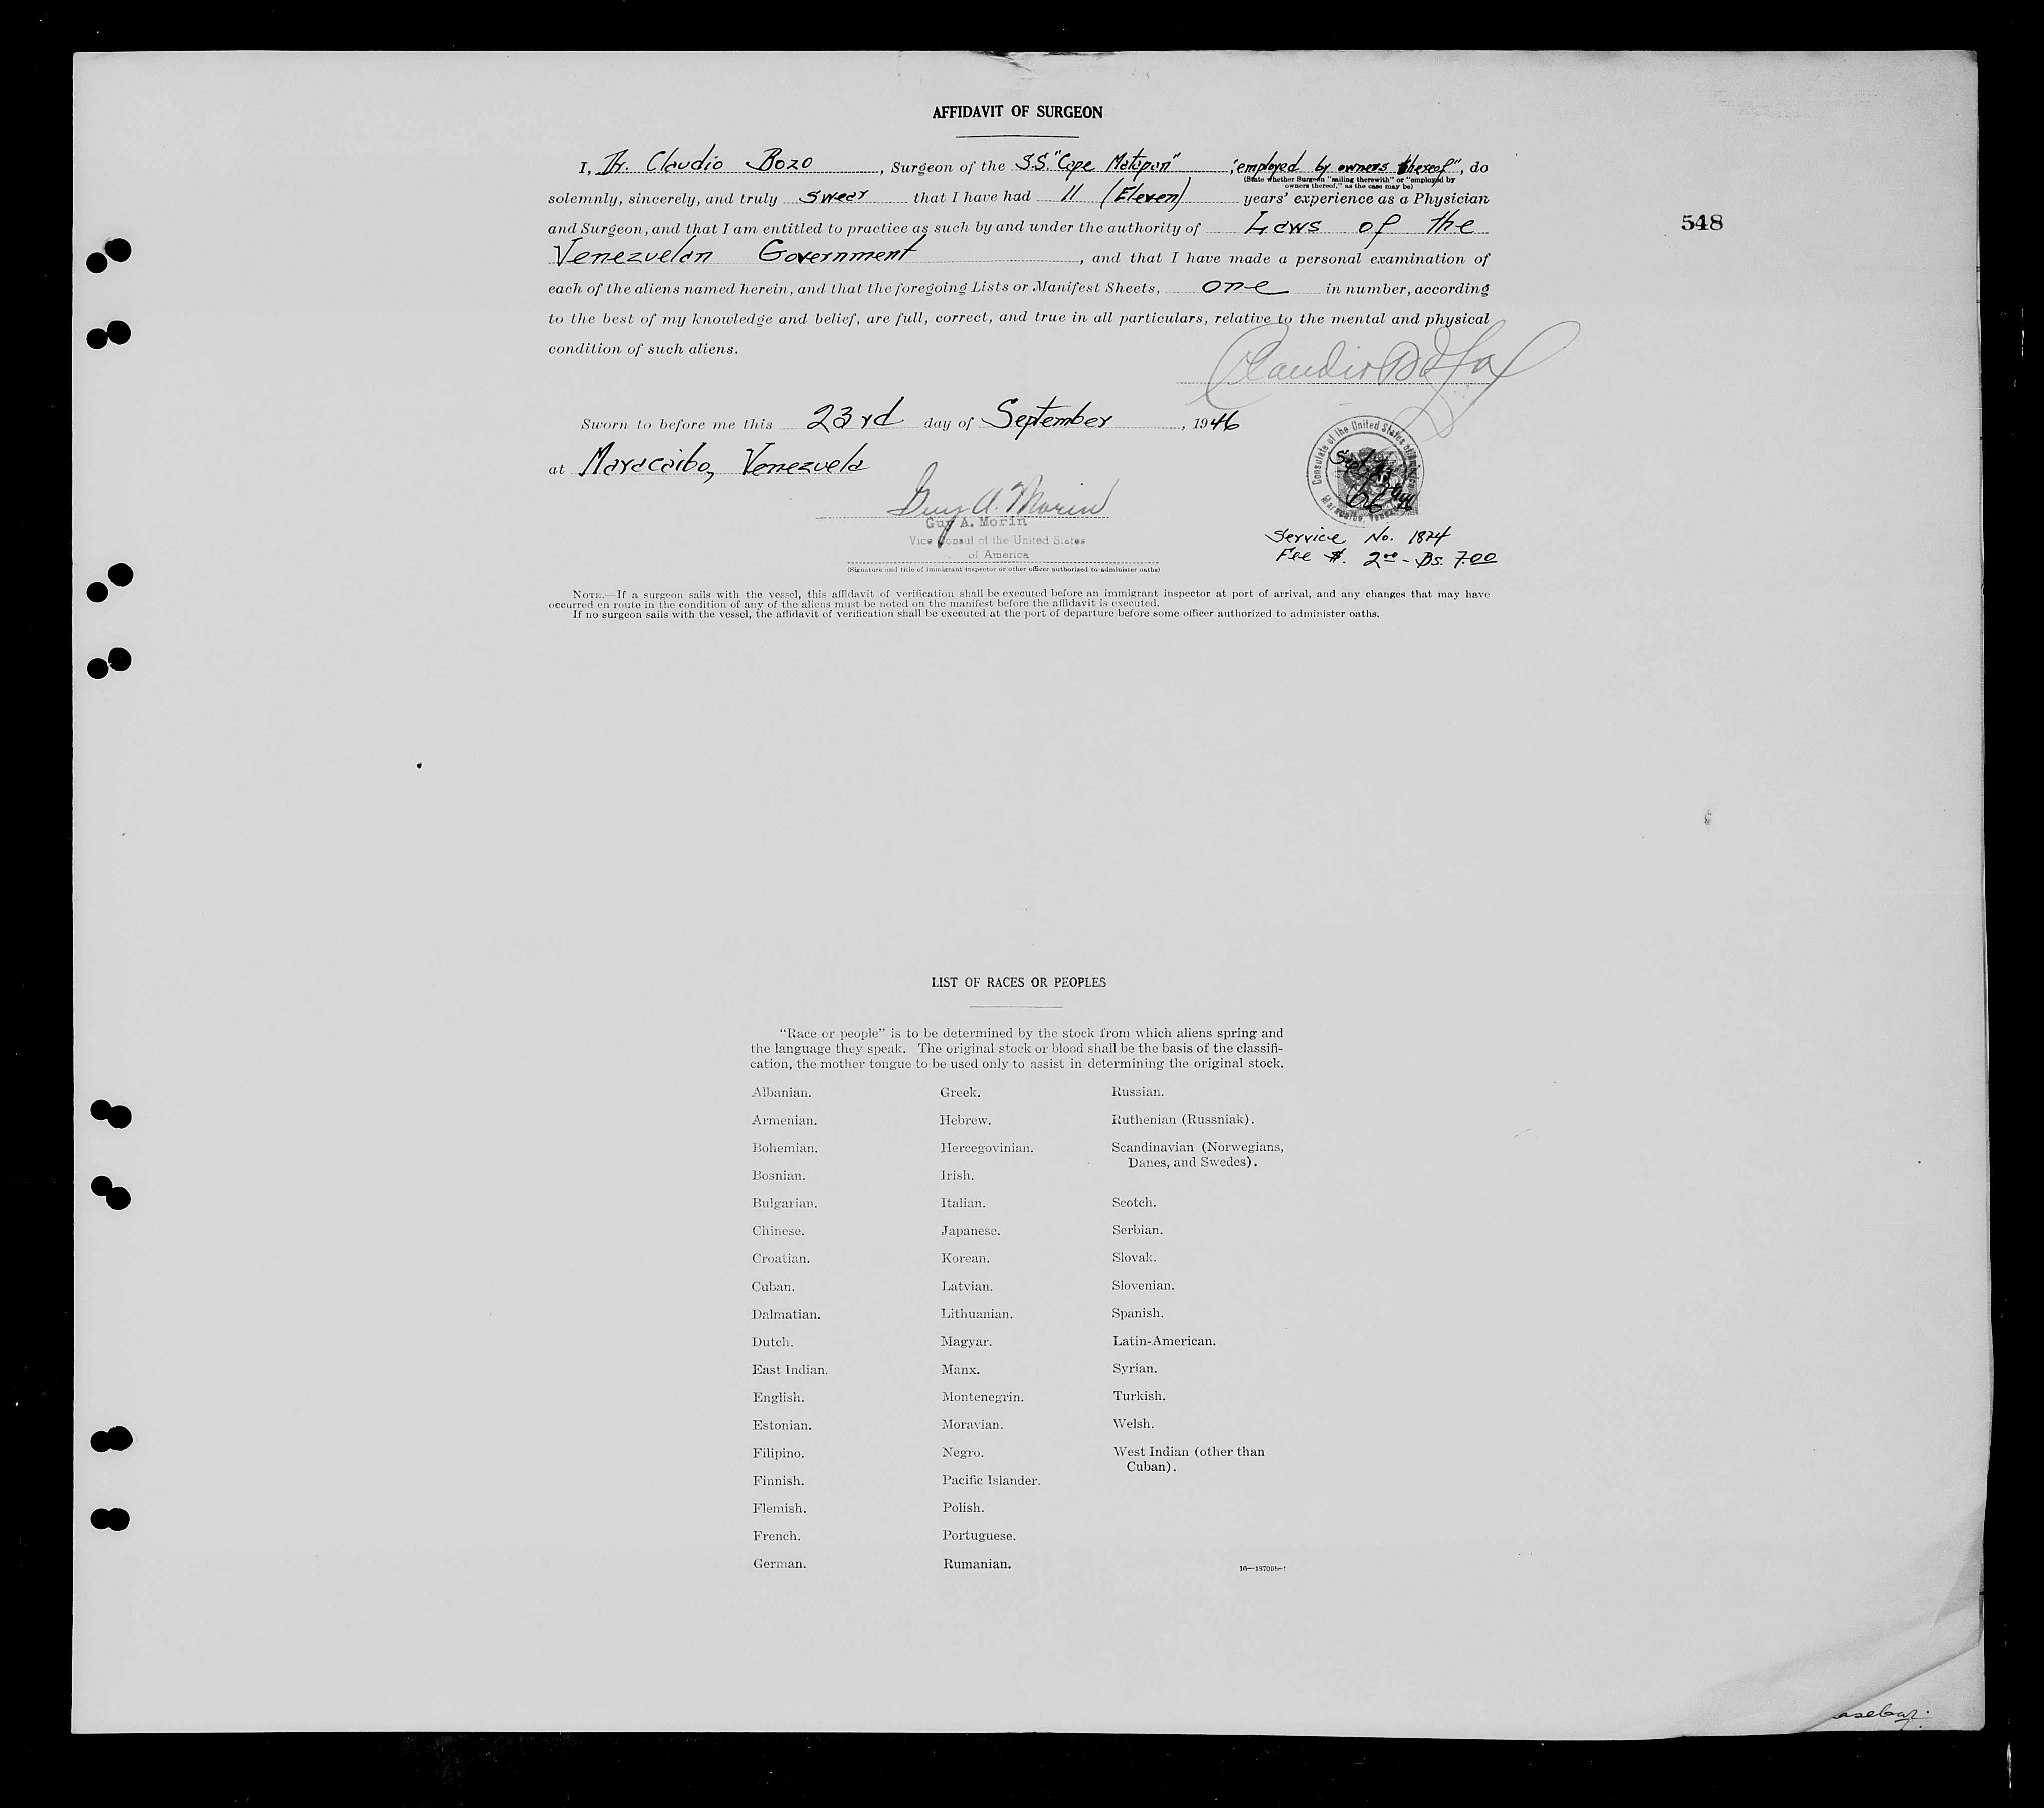 AFFIDAVIT OF SURGEON
I, Dr. Claudio Bozo, Surgeon of the S.S. "Cape Matapan", "employed by owners thereof", do
(State whether Surgeon "sailing therewith" or "employed by
owners thereof," as the case may be)
solemnly, sincerely, and truly swear that I have had 11 (Eleven) years' experience as a Physician
and Surgeon, and that I am entitled to practice as such by and under the authority of Laws of the
Venezuelan Government, and that I have made a personal examination of
each of the aliens named herein, and that the foregoing Lists or Manifest Sheets, one in number, according
to the best of my knowledge and belief, are full, correct, and true in all particulars, relative to the mental and physical
condition of such aliens.
548
Claudio
Sworn to before me this 23rd day of September, 1946
at Maracaibo, Venezuela
Consulate of the United States of America
Maracaibo, Venezuela
Sept 23
Guy A. Morin
Guy A. Morin
Vice Consul of the United States
of America
(Signature and title of immigrant inspector or other officer authorized to administer oaths)
Service No. 1824
Fee $. 2.00 - Bs. 7.00
NOTE.—If a surgeon sails with the vessel, this affidavit of verification shall be executed before an immigrant inspector at port of arrival, and any changes that may have
occurred en route in the condition of any of the aliens must be noted on the manifest before the affidavit is executed.
If no surgeon sails with the vessel, the affidavit of verification shall be executed at the port of departure before some officer authorized to administer oaths.
LIST OF RACES OR PEOPLES
"Race or people" is to be determined by the stock from which aliens spring and
the language they speak. The original stock or blood shall be the basis of the classifi-
cation, the mother tongue to be used only to assist in determining the original stock.
Albanian.
Armenian.
Bohemian.
Bosnian.
Bulgarian.
Chinese.
Croatian.
Cuban.
Dalmatian.
Dutch.
East Indian.
English.
Estonian.
Filipino.
Finnish.
Flemish.
French.
German.
Greek.
Hebrew.
Hercegovinian.
Irish.
Italian.
Japanese.
Korean.
Latvian.
Lithuanian.
Magyar.
Manx.
Montenegrin.
Moravian.
Negro.
Pacific Islander.
Polish.
Portuguese.
Rumanian.
Russian.
Ruthenian (Russniak).
Scandinavian (Norwegians,
Danes, and Swedes).
Scotch.
Serbian.
Slovak.
Slovenian.
Spanish.
Latin-American.
Syrian.
Turkish.
Welsh.
West Indian (other than
Cuban).